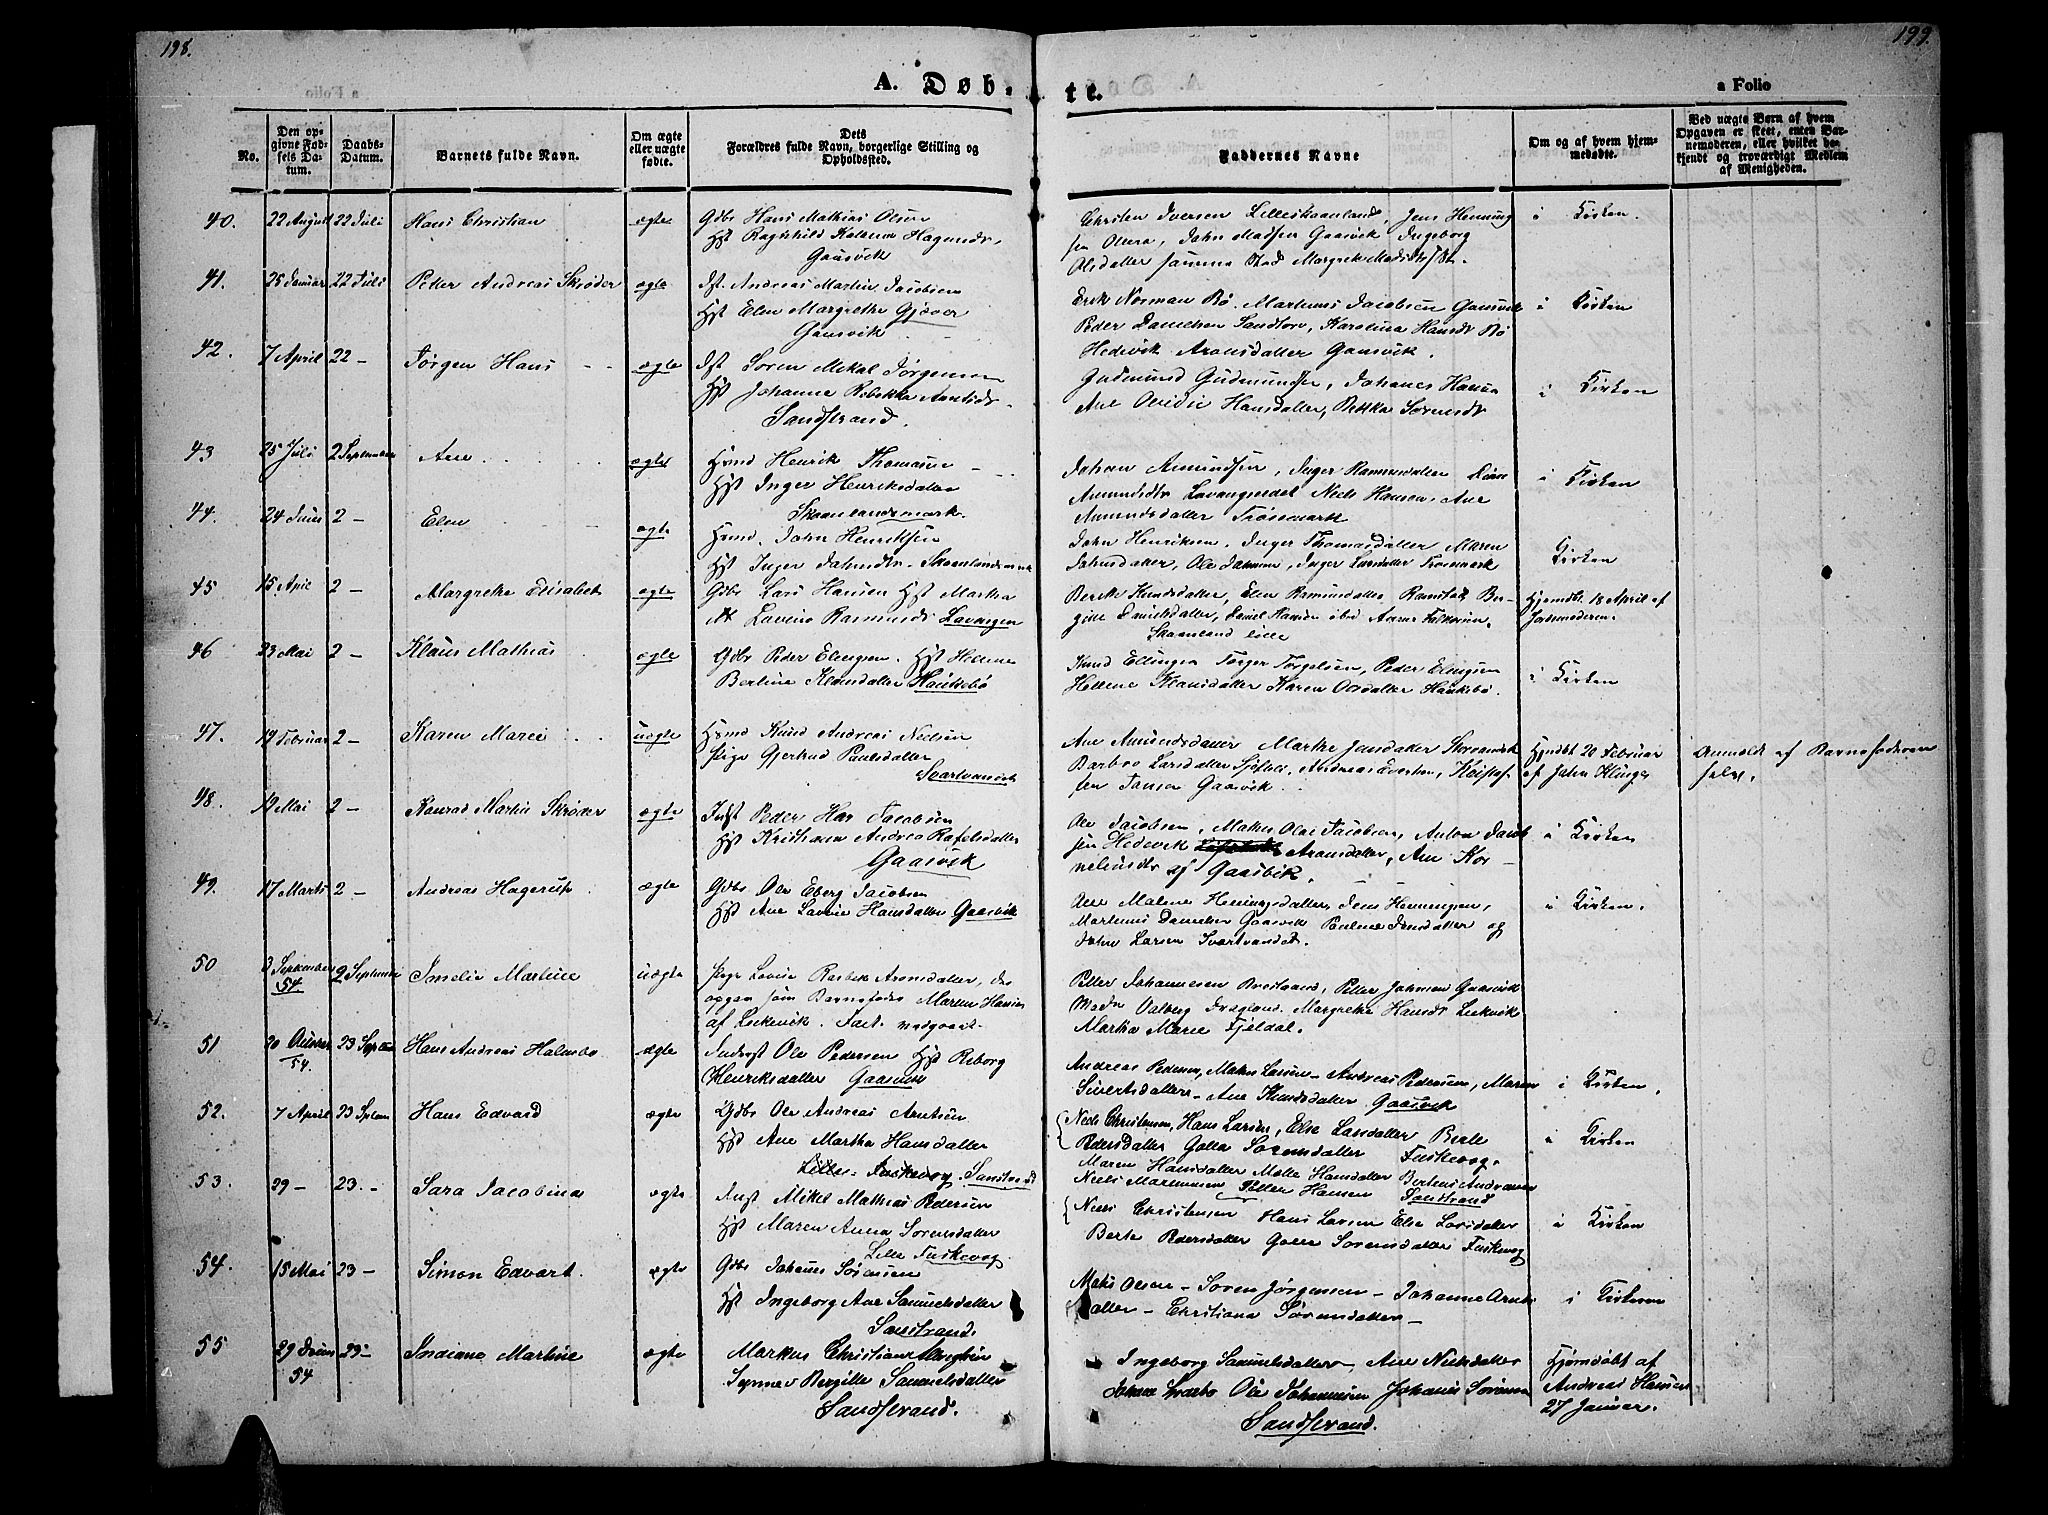 198.
199.
A. Døb-
te.
a Folio
No.
Den op-
givne Fød-
sels Da-
tum.
Daabs-
Datum.
Barnets fulde Navn.
Om ægte
eller uægte
fødte.
Dets
Forældres fulde Navn, borgerlige Stilling og
Opholdssted.
Faddernes Navne
Om og af hvem hjem-
medøbte.
Ved uægte Børn af hvem
Opgaven er skeet, enten Bar-
nemoderen, eller hvilket be-
kjendt og troværdigt Medlem
af Menigheden.
40. 22 August 22 Juli Hans Christian ægte Gdbr Hans Mathias Olsen
Hst Ragnhild
Gaasvik
Christen Iversen Lilleskaanland, Jens Henning
sen John Madsen Gaasvik Ingeborg
Olsdatter samme Stød Margrete
i Kirken.
41. 25 Januar 22 Juli Peder Andreas Skrøder ægte Ist. Andreas Martin Jacobsen
Hst Elen Margrethe Gjæver
Gaasvik
Erik Norman Bø. Martinus Jacobsen Gaasvik
Peder Danielsen Sandtorv, Karolina Hansdr Bø
Hedevik Aronsdatter Gaasvik.
i Kirken
42. 7 April 22 — Jørgen Hans ægte Ist Søren Mikal Jørgensen
Hst Johanna Rebekka
Sandstrand.
Gudmund Gudmundsen, Johanes Hansen
Ane Hansdatter, Sørensdr
i Kirken
43 25 Juli 2 September Ane ægte Hsmd Henrik Thomasen
Hst Inger Henriksdatter
Skaanlandsmark.
Johan Amundsen, Inger Rasmusdatter
Amundsdr Niels Hansen, Ane
Amundsdatter Trøssemark
i Kirken
44. 24 Juni 2 — Elen ægte Hsmd. John Henriksen
Hst Inger Johnsdr. Skaanlandsmark
John Henriksen, Inger Thomasdatter Maren
Johnsdatter, Ole Johnsen, Inger Larsdatter Trøsemark
Kirken
45 15 April 2 — Margrethe Elisabet ægte Gdbr Lars Hansen Hst Martha
Lavina Rasmusdr Lavangen
Berit Knudsdatter, Elen Ber-
gitte Danielsdatter, Daniel Hansen
Skaanland lille
Hjemdbt 18 April af
Jordmoderen.
46 23 Mai 2 — Klaus Mathias ægte Gdbr Peder Elingsen. Hst Hellene
Berline Klausdatter Haukebø
Knud Ellingsen Torger Torgelsen, Peder Elingsen
Hellene Klausdatter Karen Olsdatter Haukebø.
i Kirken
47. 19 Februar 2 — Karen Marie uægte Hsmd Knud Andreas Nielsen
Pige Gjertrud Paulsdatter
Svartvandet
Ane Amundsdatter Marthe Jensdatter
Barbro Larsdatter Andreas Evertsen,
sen Jansen Gaasvik
Hjmdbt 20 Februar
af John Klinge
Anmeldt af Barnefaderen
selv.
48. 19 Mai 2 — Konrad Martin Skrøder ægte Indst Peder Har Jacobsen
Hst Kristianna Andrea Rafelsdatter
Gaasvik
Ole Jacobsen, Mathis Olai Jacobsen, Anton Jacob
sen Hedevik Aronsdatter, Ane Kor-
neliusdtr af Gaasvik.
i Kirken
49. 17 Marts 2 — Andreas Hagerup. ægte Gdbr Ole Eberg Jacobsen
Hst Ane Lavine Hansdatter Gaasvik
Ane Malene Heningsdatter, Jens Henningsen,
Martinus Danielsen Gaasvik Pauline Jensdatter og
John Larsen Svartvandet.
i Kirken.
50 3 September
54. 2 September Amelie Martine uægte Pige Lovise Aronsdatter, der
opgav som Barnefader Maren Hansen
af Leikvik.
Petter Johannesen Petter Johnsen Gaasvik
Aalberg Margrethe Hansdr Leikvik
Martha Marie Fjeldal.
51 20 October
54. 23 Septem Hans Andreas Halmbo ægte Inderst Ole Pedersen Hst Reborg
Henriksdatter Gaasvik
Andreas Pedersen, Mathis Larsen — Andreas Pedersen, Maren
Sivertsdatter — Ane Knudsdatter Gaasvik
i Kirken.
52. 7 April 23 Septem Hans Edvard ægte Gdbr Ole Andreas Arntsen
Hst Ane Martha Hansdatter
Lille-Fuskevog. Sandstrand
Niels Christensen, Hans Larsen, Else Larsdatter Berte
Pedersdatter Golla Sørensdatter Fuskevog.
Maren Hansdatter Molle Hansdatter
Niels Petter Hansen Sandstrand
i Kirken
53. 29 — 23 — Sara Jacobina ægte Indst Mikel Mathias Pedersen
Hst Maren Anna Sørensdatter
Lille Fuskevog.
Niels Christensen Hans Larsen Else Larsdatter
Berte Pedersdatter Golla Sørensdatter Fuskevog
i Kirken
54. 15 Mai 23 — Simon Edvart. ægte Gdbr Johannes Sørensen
Hst Ingeborg Ane Samuelsdatter
Sandstrand.
Mathis Olsen — Søren Jørgensen — Johanne Arnts
datter — Christiana Sørensdatter —
i Kirken
55 29 Januar
54 23 — Indiane Martine ægte Markus Christian
Synnev Bergitte Samuelsdatter
Sandstrand.
Ingeborg Samuelsdatter, Ane Nielsdatter
Ole Johannesen Johanes Sørensen
Sandstrand.
Hjemdøbt af
Andreas Hansen
27 Januar.